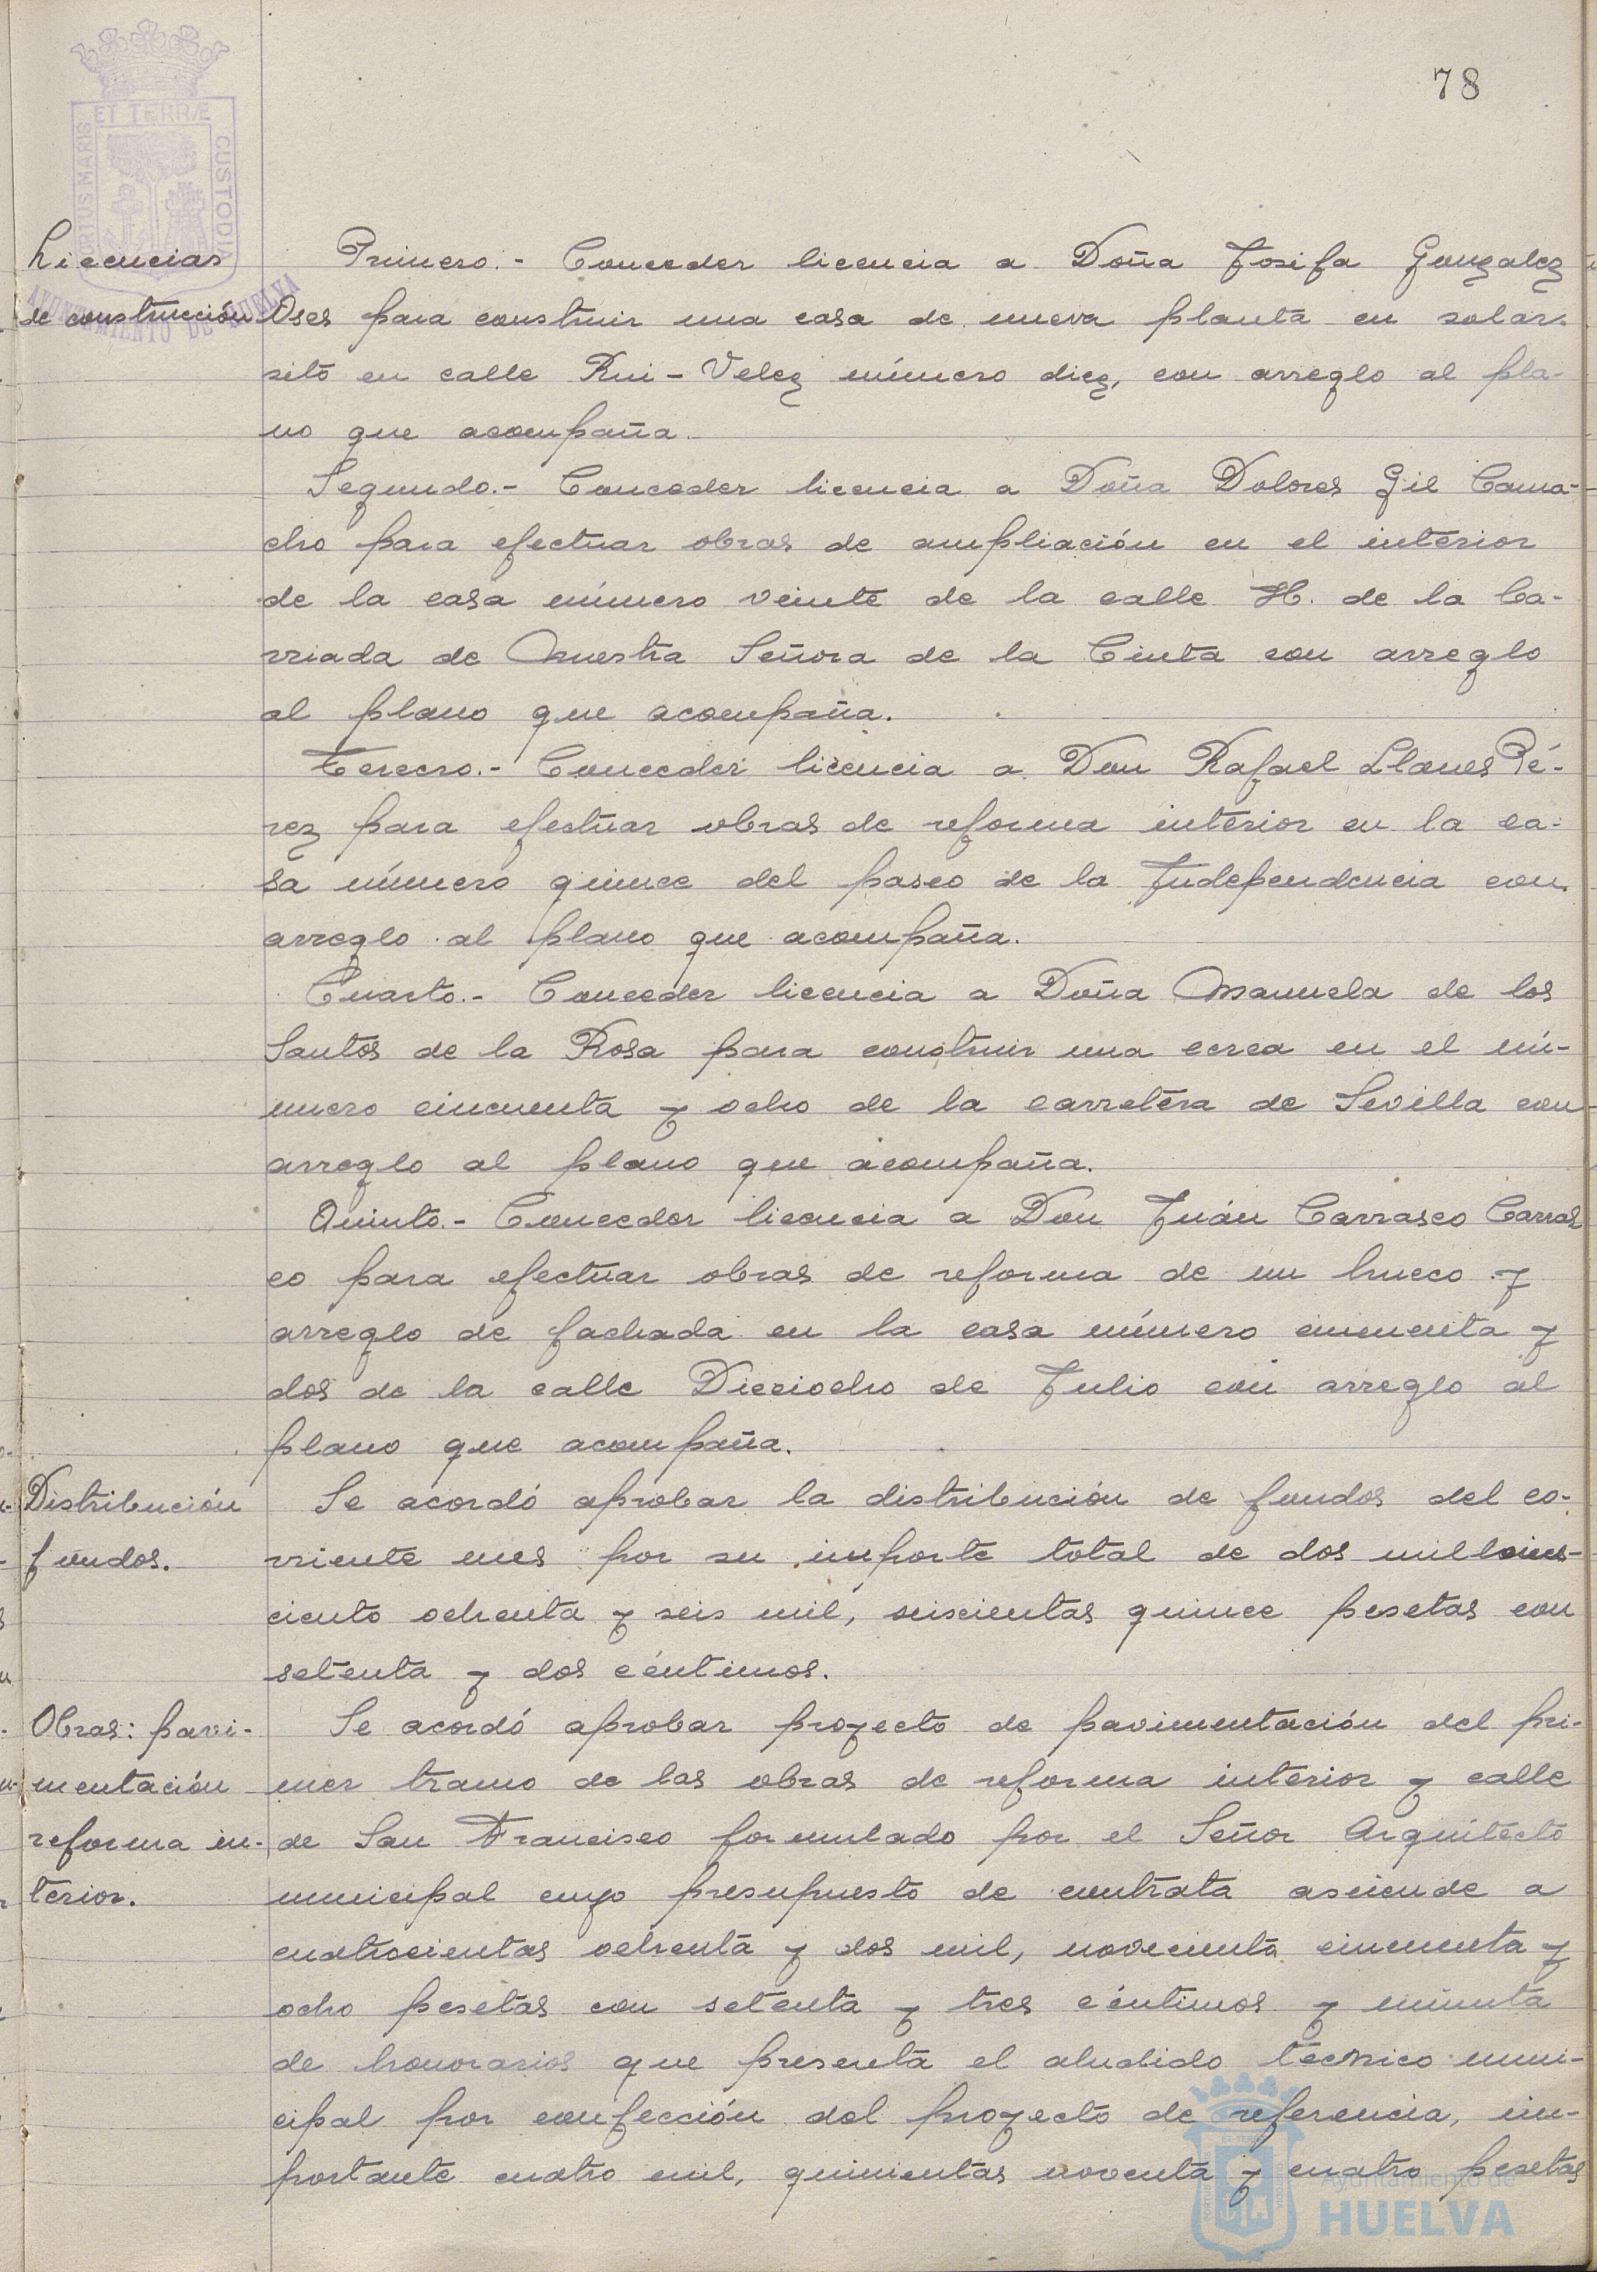 78
PORTUS MARIS ET TERRÆ CUSTODIA
AYUNTAMIENTO DE HUELVA
Licencias
de construcción
Primero.- Conceder licencia a Doña Josefa Gonzalez
Oses para construir una casa de nueva planta en solar
sito en calle Rui-Velez número diez, con arreglo al pla-
no que acompaña.
Segundo.- Conceder licencia a Doña Dolores Gil Cama-
cho para efectuar obras de ampliación en el interior
de la casa número veinte de la calle H. de la ba-
rriada de Nuestra Señora de la Cinta con arreglo
al plano que acompaña.
Tercero.- Conceder licencia a Don Rafael Llanes Pé-
rez para efectuar obras de reforma interior en la ca-
sa número quince del paseo de la Independencia con
arreglo al plano que acompaña.
Cuarto.- Conceder licencia a Doña Manuela de los
Santos de la Rosa para construir una cerca en el nú-
mero cincuenta y ocho de la carretera de Sevilla con
arreglo al plano que acompaña.
Quinto.- Conceder licencia a Don Juán Carrasco Carras
co para efectuar obras de reforma de un hueco y
arreglo de fachada en la casa número cincuenta y
dos de la calle Dieciocho de Julio con arreglo al
plano que acompaña.
Distribución
fondos.
Se acordó aprobar la distribución de fondos del co-
rriente mes por su importe total de dos millones-
ciento ochenta y seis mil, seiscientas quince pesetas con
setenta y dos céntimos.
Obras: pavi-
mentación
reforma in-
terior.
Se acordó aprobar proyecto de pavimentación del pri-
mer tramo de las obras de reforma interior y calle
de San Francisco formulado por el Señor Arquitecto
municipal cuyo presupuesto de contrata asciende a
cuatrocientas ochenta y dos mil, novecienta cincuenta y
ocho pesetas con setenta y tres céntimos y minuta
de honorarios que presenta el aludido técnico muni-
cipal por confección del proyecto de referencia, im-
portante cuatro mil, quinientas noventa y cuatro pesetas
Ayuntamiento de
HUELVA